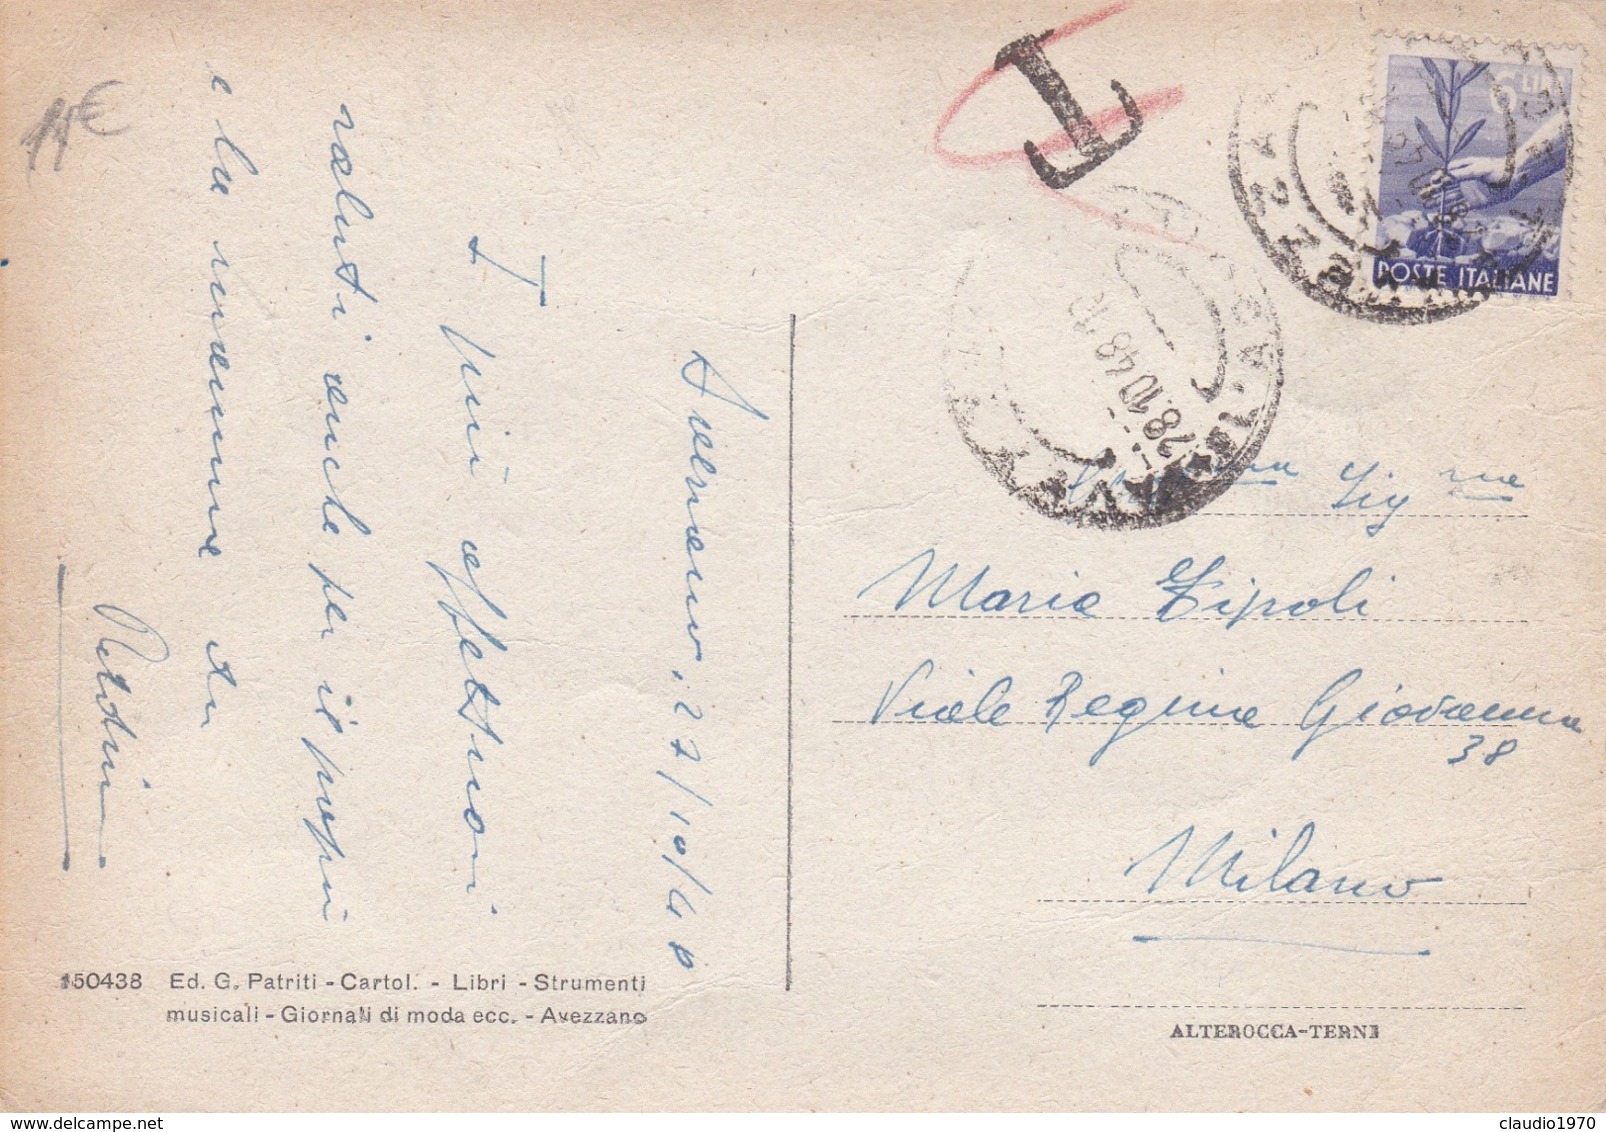 11€
T
6 LIRE
POSTE ITALIANE
AVEZZANO
L'AQUILA
28.10.48.10
Avezzano, 27/10/48
I più affettuosi
saluti anche per il papà
e la mamma da
Gig.na Sig.na
Maria Zipoli
Viale Regina Giovanna
38
Milano
150438 Ed. G. Patriti - Cartol. - Libri - Strumenti
musicali - Giornali di moda ecc. - Avezzano
ALTEROCCA-TERNI
claudio1970